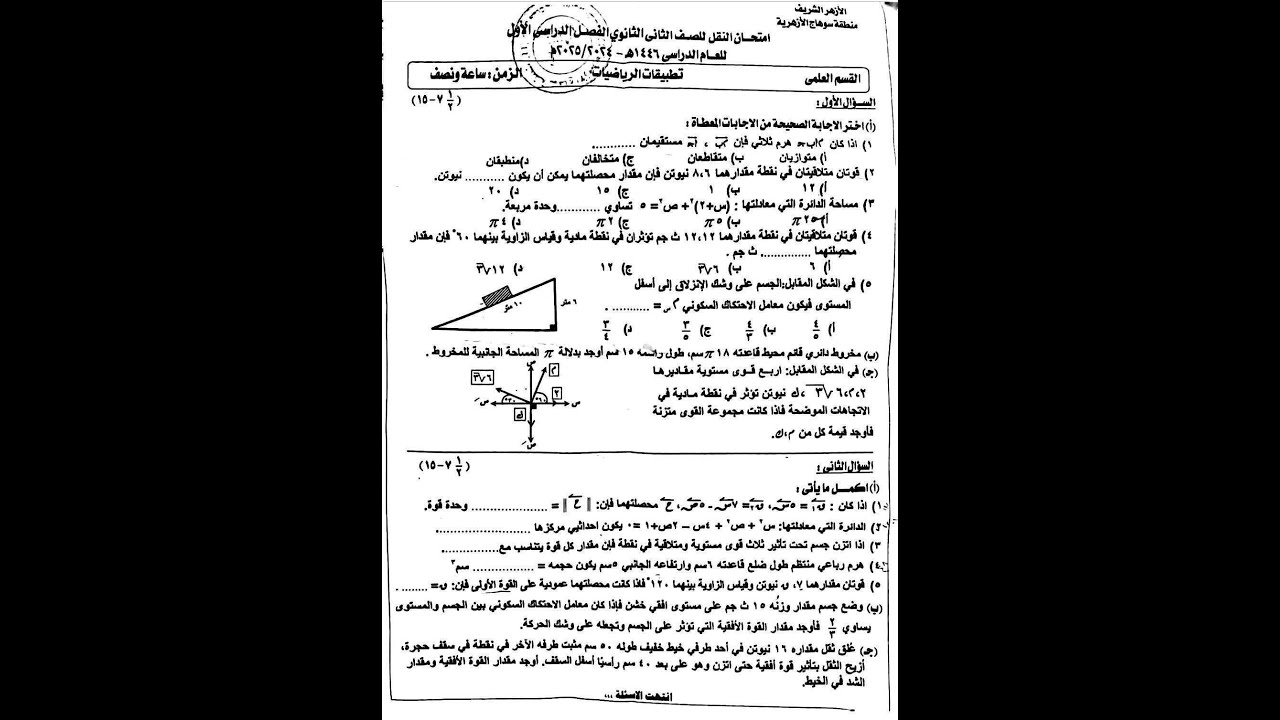 الأزهر الشريف
منطقة سوهاج الأزهرية
امتحان النقل للصف الثانى الثانوي الفصل الدراسى الأول
للعام الدراسى ١٤٤٦هـ - ٢٠٢٤/٢٠٢٥م
القسم العلمى تطبيقات الرياضيات الزمن: ساعة ونصف
السؤال الأول: (١/٢ ٧-١٥)
(أ) اختر الاجابة الصحيحة من الاجابات المعطاة:
١) اذا كان م ا ب ج هرم ثلاثي فإن مستقيمان ............
أ) متوازيان ب) متقاطعان ج) متخالفان د) منطبقان
٢) قوتان متلاقيتان في نقطة مقدارهما ٨،٦ نيوتن فإن مقدار محصلتهما يمكن أن يكون .......... نيوتن.
أ) ١٢ ب) ١ ج) ١٥ د) ٢٠
٣) مساحة الدائرة التي معادلتها: (س+٢)٢ + ص٢ = ٥ تساوي ...........وحدة مربعة.
أ) ٢٥ π ب) ٥ π ج) ٢ π د) ٤ π
٤) قوتان متلاقيتان في نقطة مقدارهما ١٢،١٢ ث جم تؤثران في نقطة مادية وقياس الزاوية بينهما ٦٠° فإن مقدار
محصلتهما .............. ث جم.
أ) ٦ ب) ٦√٣ ج) ١٢ د) ١٢√٣
٥) في الشكل المقابل:الجسم على وشك الإنزلاق إلى أسفل
المستوى فيكون معامل الاحتكاك السكوني م س = ........... .
أ) ٤/٥ ب) ٤/٣ ج) ٣/٥ د) ٣/٤
٦ متر
١٠ متر
(ب) مخروط دائري قائم محيط قاعدته ١٨ π سم، طول راسمه ١٥ سم أوجد بدلالة π المساحة الجانبية للمخروط.
(ج) في الشكل المقابل: اربع قوى مستوية مقاديرها
٢،م،٦√٣،ك نيوتن تؤثر في نقطة مادية في
الاتجاهات الموضحة فاذا كانت مجموعة القوى متزنة
فأوجد قيمة كل من م،ك.
ص
م
٦√٣
٢
٦٠°
٣٠°
س
سَ
ك
صَ
السؤال الثانى: (١/٢ ٧-١٥)
(أ) اكمل ما يأتى:
١) اذا كان: ق١ = ٥س، ق٢= ٧س - ٥ص، ح محصلتهما فإن: ||ح|| = ...................... وحدة قوة.
٢) الدائرة التي معادلتها: س٢ + ص٢ + ٤س - ٢ص+١ =٠ يكون احداثيي مركزها ..........................
٣) اذا اتزن جسم تحت تأثير ثلاث قوى مستوية ومتلاقية في نقطة فإن مقدار كل قوة يتناسب مع................
٤) هرم رباعي منتظم طول ضلع قاعدته ٦سم وارتفاعه الجانبي ٥سم يكون حجمه = .................. سم٣
٥) قوتان مقدارهما ٧، ق نيوتن وقياس الزاوية بينهما ١٢٠° فاذا كانت محصلتهما عمودية على القوة الأولى فإن: ق= ........ .
(ب) وضع جسم مقدار وزنه ١٥ ث جم على مستوى افقي خشن فإذا كان معامل الاحتكاك السكوني بين الجسم والمستوى
يساوي ٢/٣ فأوجد مقدار القوة الأفقية التي تؤثر على الجسم وتجعله على وشك الحركة.
(ج) عُلق ثقل مقداره ١٦ نيوتن في أحد طرفي خيط خفيف طوله ٥٠ سم مثبت طرفه الآخر في نقطة في سقف حجرة،
أزيح الثقل بتأثير قوة أفقية حتى اتزن وهو على بعد ٤٠ سم رأسيًا أسفل السقف. أوجد مقدار القوة الأفقية ومقدار
الشد في الخيط.
انتهت الاسئلة ...